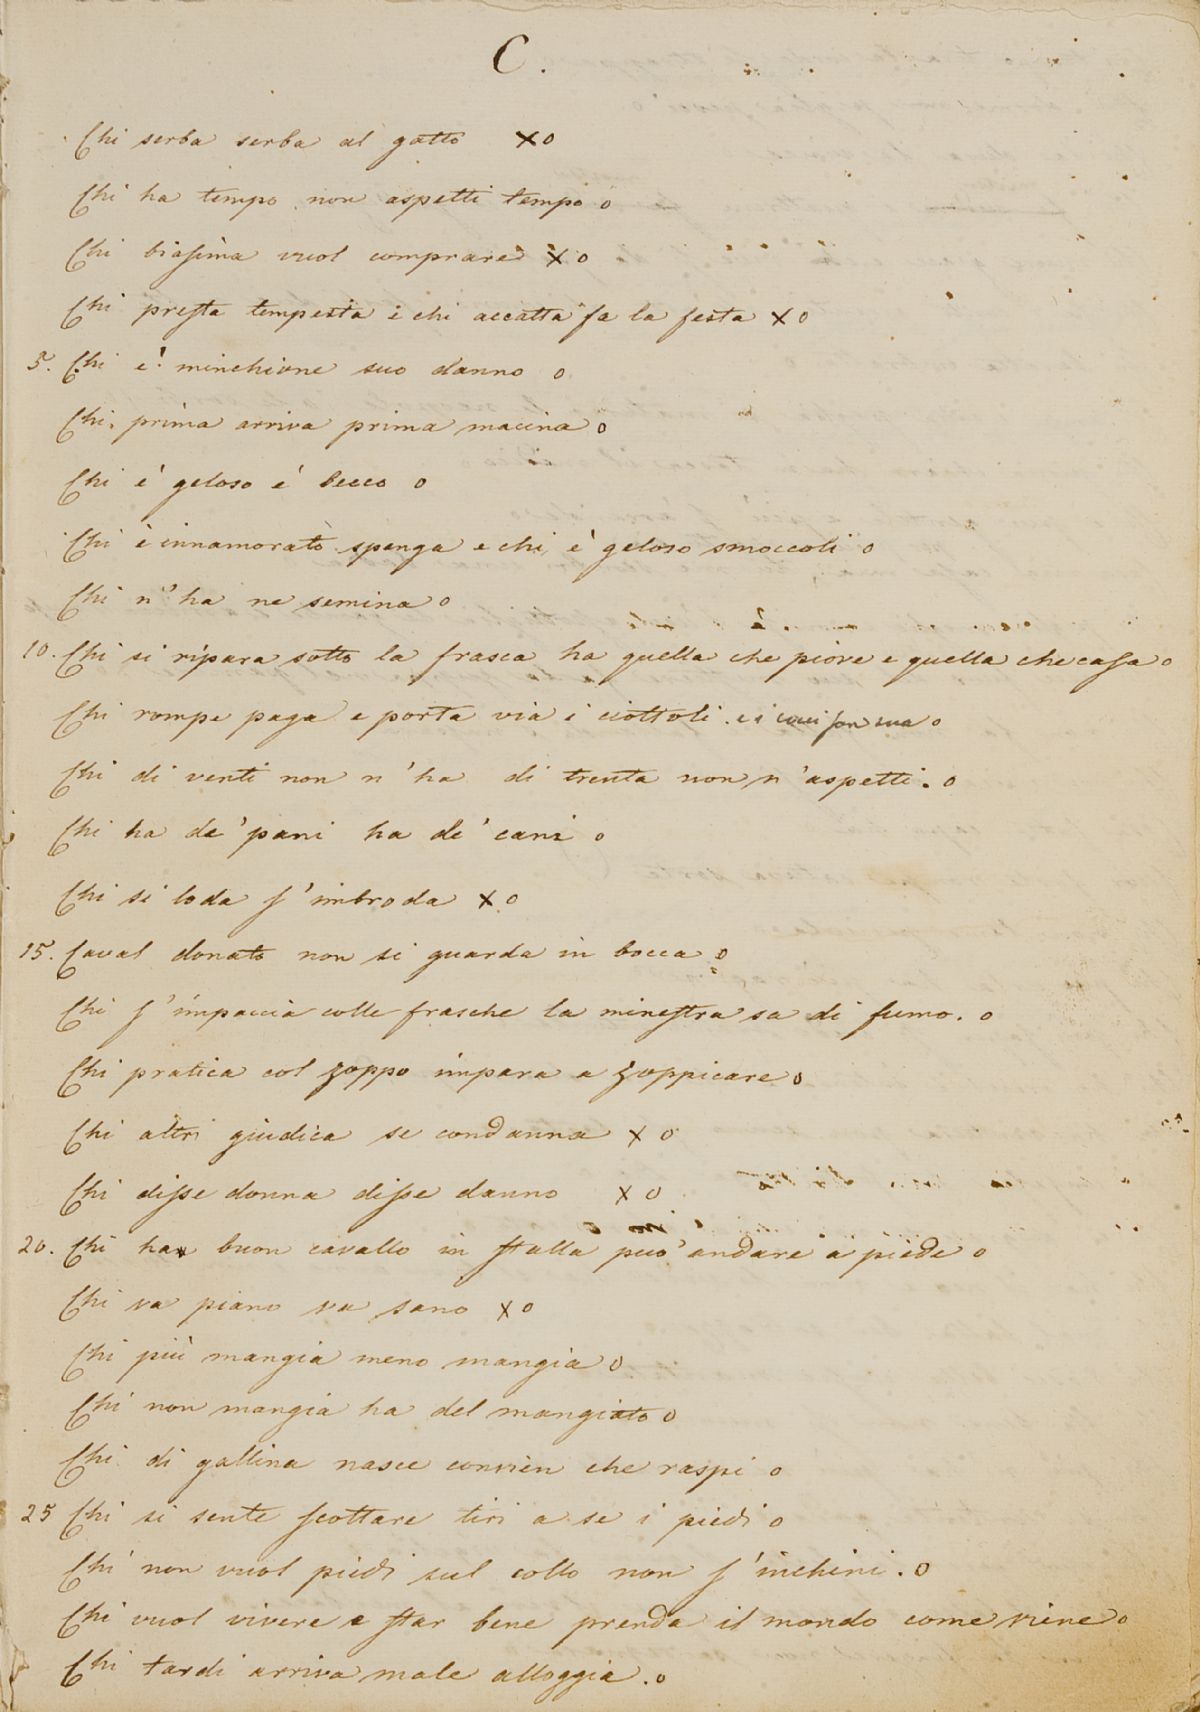 C.
Chi serba serba al gatto xo
Chi ha tempo non aspetti tempo o
Chi biasima vuol comprare xo
Chi presta tempesta e chi accatta fa la festa xo
5. Chi e' minchione suo danno o
Chi prima arriva prima macina o
Chi è geloso é becco o
Chi è innamorato spenga e chi è geloso smoccoli o
Chi n'ha ne semina o
10. Chi si ripara sotto la frasca ha quella che piove e quella che casca o
Chi rompe paga e porta via i ciottoli. e i cocci son sua o
Chi di venti non n'ha di trenta non n'aspetti. o
Chi ha de' pani ha de' cani o
Chi si loda s'imbroda x o
15. Caval donato non si guarda in bocca o
Chi s'impaccia colle frasche la minestra sa di fumo. o
Chi pratica col zoppo impara a zoppicare o
Chi altri giudica se condanna x o
Chi disse donna disse danno x o
20. Chi ha buon cavallo in stalla può andare a piede o
Chi va piano va sano xo
Chi più mangia meno mangia o
Chi non mangia ha del mangiato o
Chi di gallina nasce convien che raspi o
25 Chi si sente scottare tiri a se i piedi o
Chi non vuol piedi sul collo non s'inchini. o
Chi vuol vivere e star bene prenda il mondo come viene o
Chi tardi arriva male alloggia. o